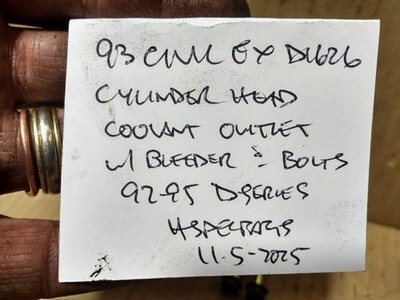 93 CIVIC EX D16Z6
CYLINDER HEAD
COOLANT OUTLET
w/ BLEEDER & BOLTS
92-95 DSERIES
HSPECPARTS
11-5-2025